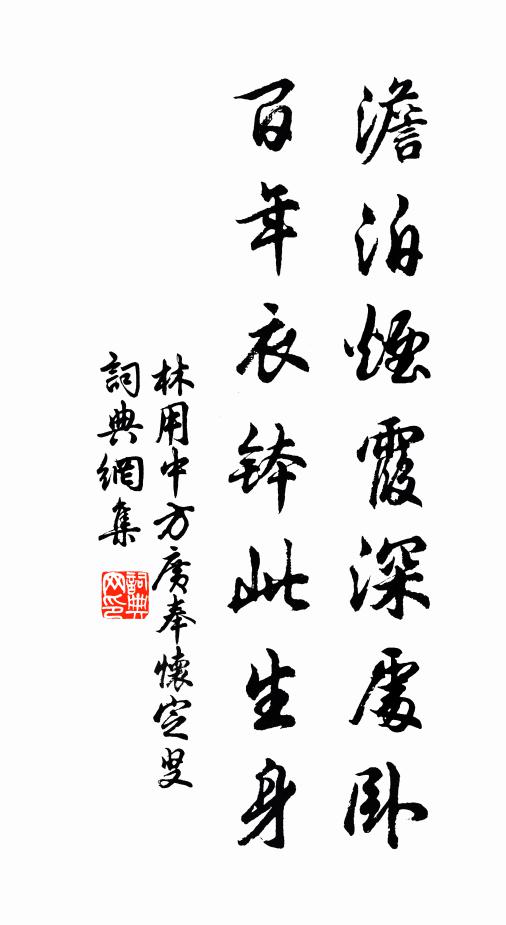 澹泊煙霞深處卧
百年衣鉢此生身
林用中方廣奉懷定叟
詞典網集
詞典网印